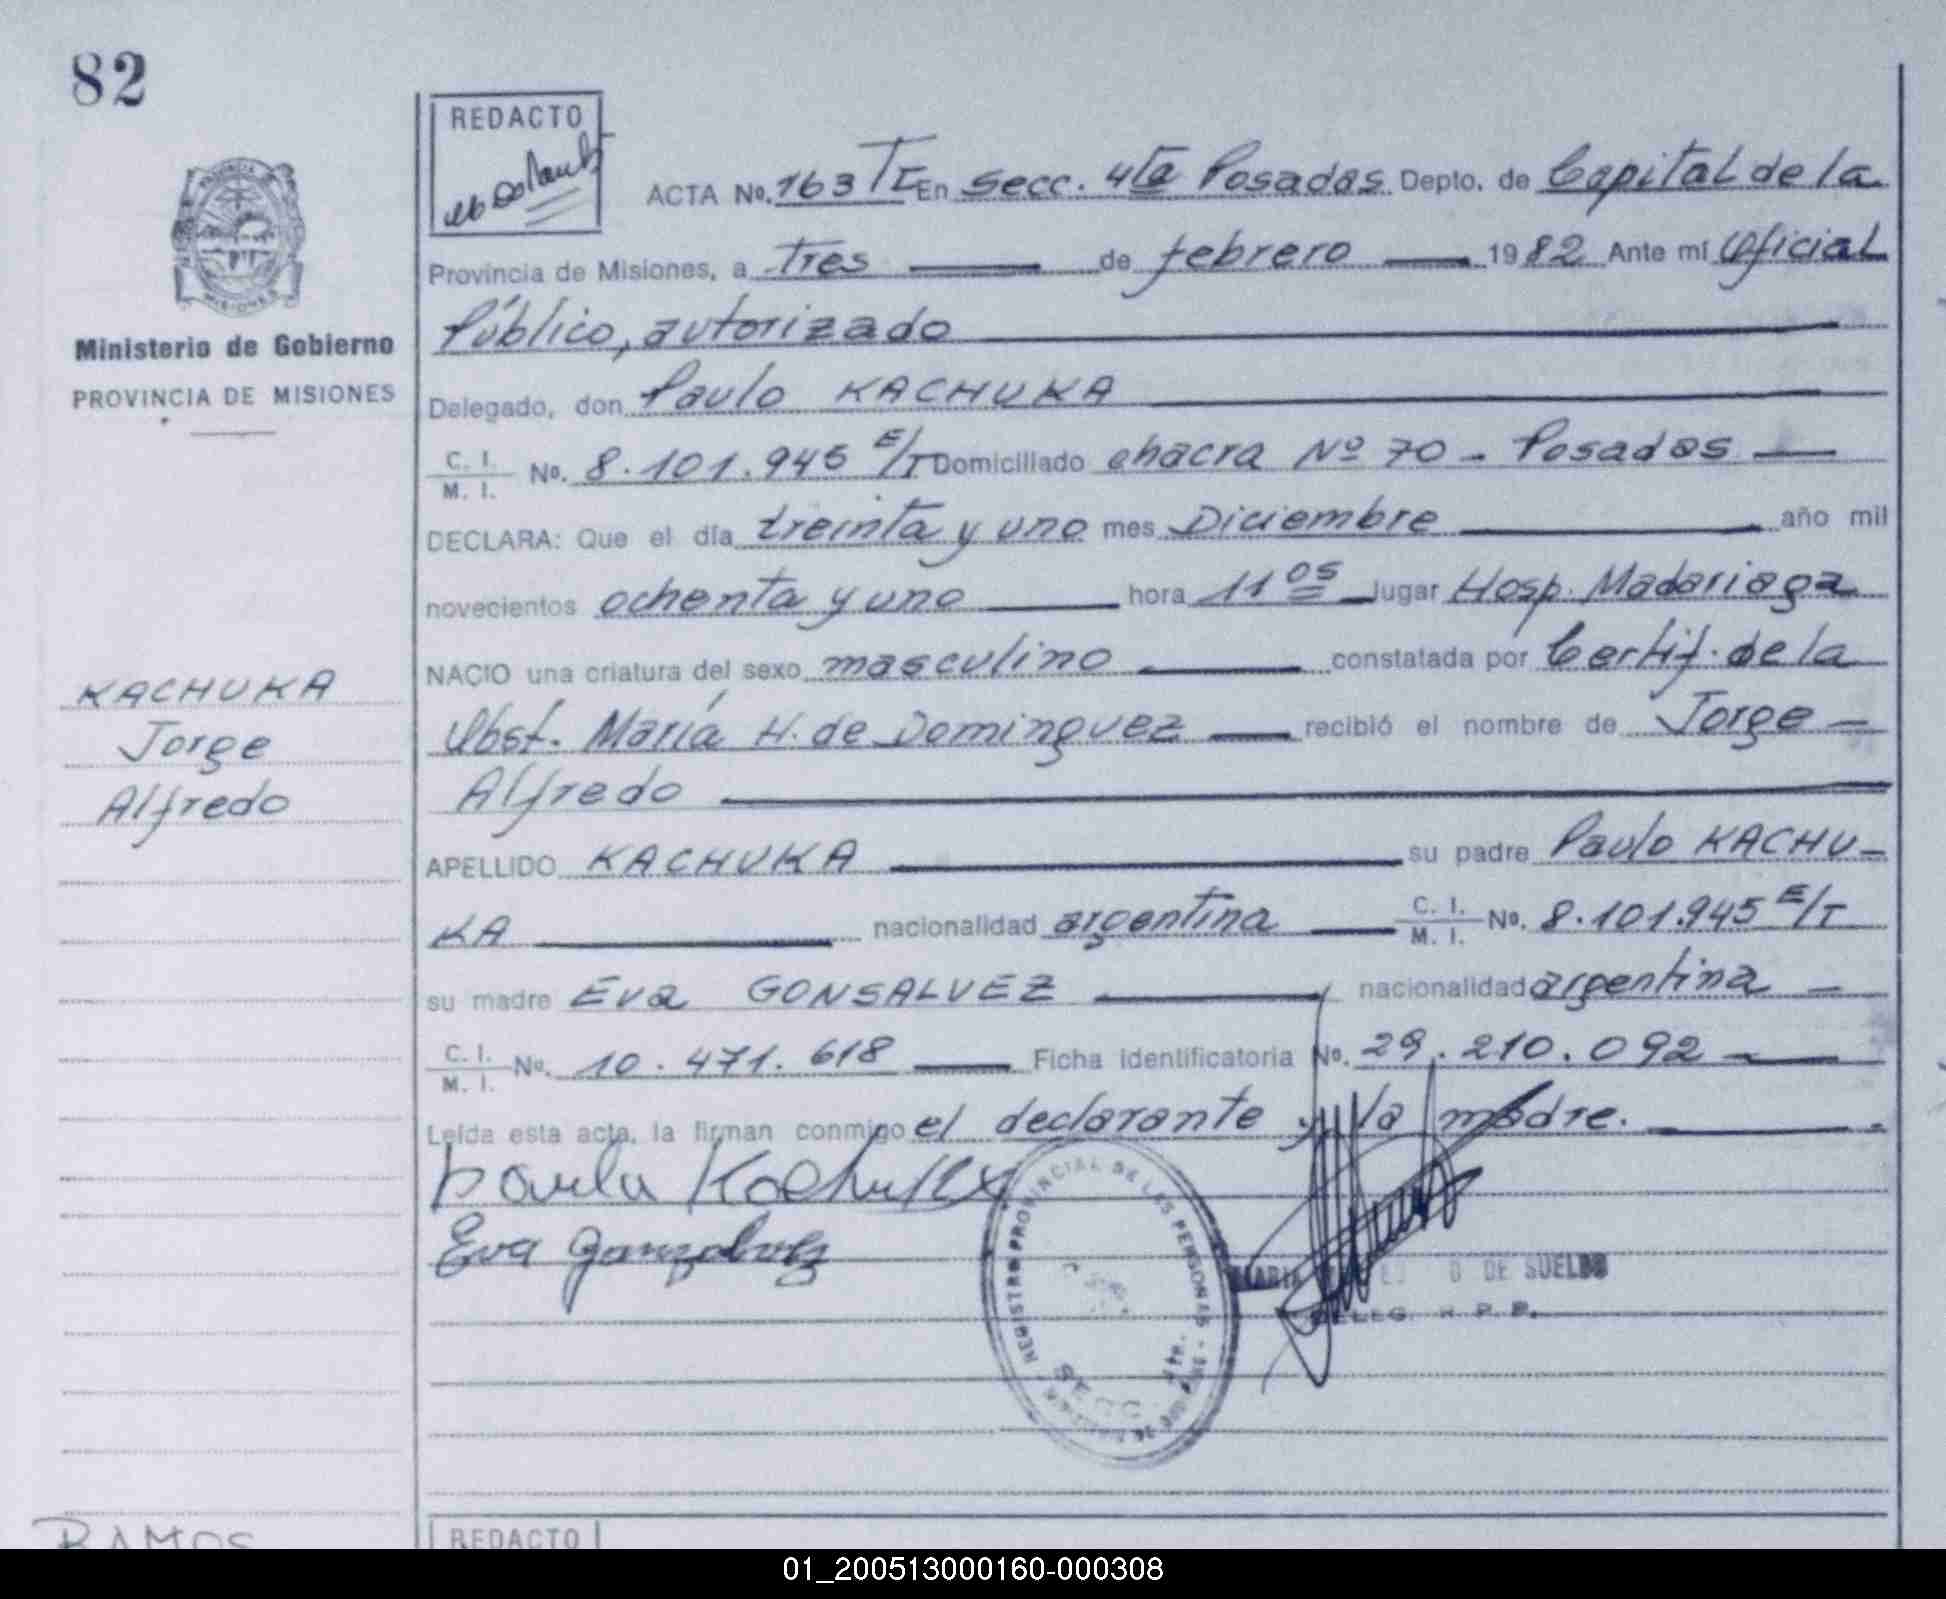 82
REDACTO
ACTA No. 163 TI En Secc. 4ta Posadas Depto. de Capital de la
Provincia de Misiones, a Tres de febrero 1982 Ante mí Oficial
Público, autorizado
Ministerio de Gobierno
PROVINCIA DE MISIONES
Delegado, don Paulo KACHUKA
C. I. M. I. No. 8.101.945 E/T Domiciliado chacra Nº 70 - Posadas
DECLARA: Que el día treinta y uno mes Diciembre año mil
novecientos ochenta y uno hora 11 05 lugar Hosp. Madariaga
NACIO una criatura del sexo masculino constatada por Certif. de la
Obst. María H. de Dominguez recibió el nombre de Jorge
Alfredo
KACHUKA
Jorge
Alfredo
APELLIDO KACHUKA su padre Paulo KACHU-
KA nacionalidad argentina C. I. M. I. No. 8.101.945 E/T
su madre Eva GONSALVEZ nacionalidad argentina
C. I. M. I. No. 10.471.618 Ficha identificatoria No. 29.210.092
Leída esta acta, la firman conmigo el declarante y la madre.
Eva
REGISTRO PROVINCIAL DE LAS PERSONAS
SECC. 4ta.
MARIA DE SUELDO
DELEG. R. P. P.
RAMOS
REDACTO
01_200513000160-000308